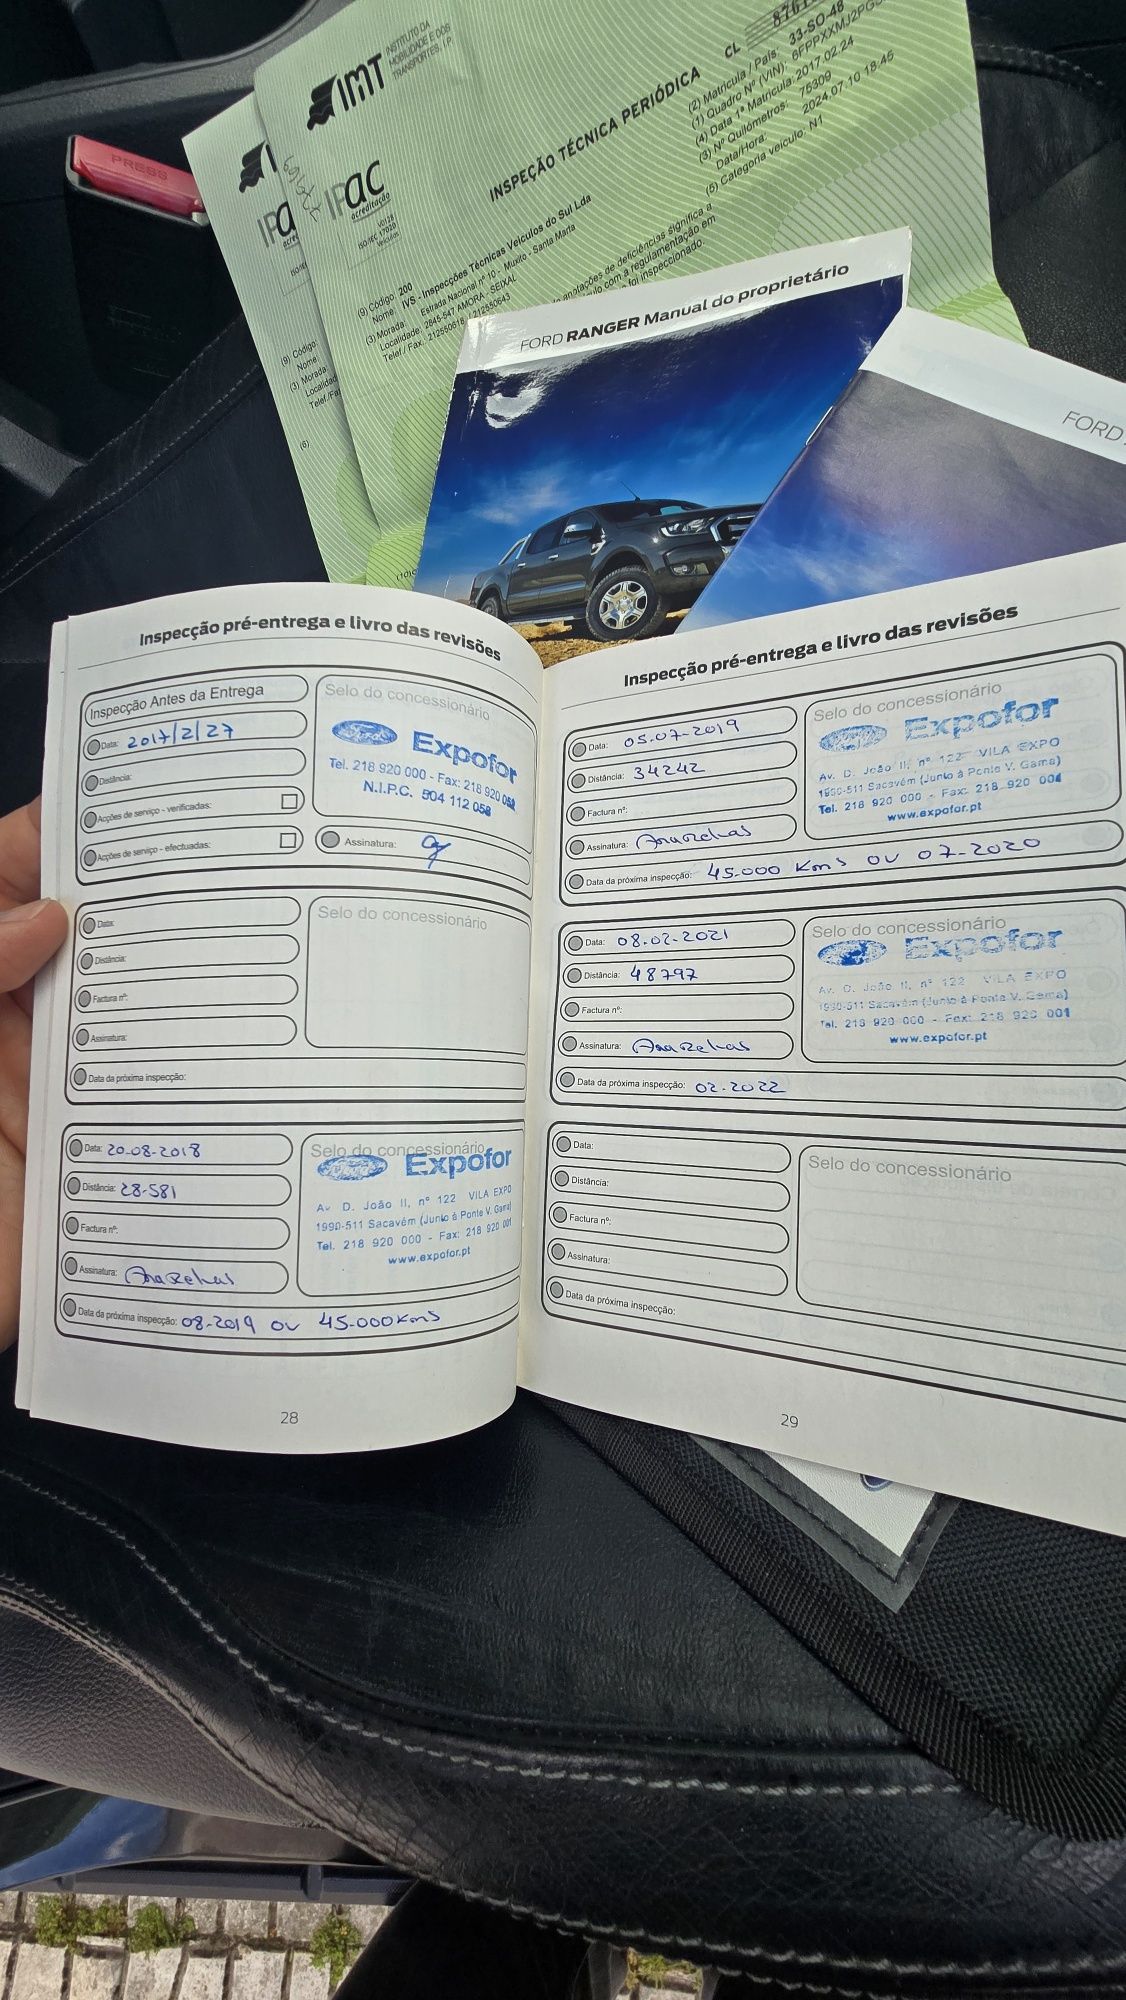 PRESS
IMT INSTITUTO DA
MOBILIDADE E DOS
TRANSPORTES, I.P.
IPac
acreditação
V0128
ISO/IEC 17020
Veículos
INSPEÇÃO TÉCNICA PERIÓDICA
CL
(2) Matrícula / País: 33-SO-48
(1) Quadro Nº (VIN):
(4) Data 1ª Matrícula: 2017.02.24
(3) Nº Quilómetros: 75309
Data/Hora: 2024.07.10 18:45
(5) Categoria veículo: N1
(9) Código 200
Nome: IVS - Inspecções Técnicas Veículos do Sul Lda
(3) Morada: Estrada Nacional nº 10 - Muxito - Santa Marta
Localidade: 2845-547 AMORA - SEIXAL
Telef./ Fax: 212550616 / 212550643
anotações de deficiências significa a
com a regulamentação em
foi inspeccionado.
IPa
(9) Código:
Nome:
(3) Morada:
Localidad
Telef./Fa
(6)
FORD RANGER Manual do proprietário
FORD
Inspecção pré-entrega e livro das revisões
Inspecção Antes da Entrega
Data: 2017/2/27
Distância:
Acções de serviço - verificadas:
Acções de serviço - efectuadas:
Selo do concessionário
Ford Expofor
Tel. 218 920 000 - Fax: 218 920
N.I.P.C. 504 112 058
Assinatura:
Data:
Distância:
Factura nº:
Assinatura:
Data da próxima inspecção:
Selo do concessionário
Data: 20-08-2018
Distância: 28-581
Factura nº:
Assinatura:
Data da próxima inspecção: 08-2019 OU 45-000 Kms
Selo do concessionário
Expofor
Av D. João II, nº 122 VILA EXPO
1990-511 Sacavém (Junto à Ponte V. Gama)
Tel. 218 920 000 - Fax: 218 920 001
www.expofor.pt
28
Inspecção pré-entrega e livro das revisões
Data: 05-07-2019
Distância: 34242
Factura nº:
Assinatura:
Data da próxima inspecção: 45-000 Kms OU 07-2020
Selo do concessionário
Expofor
Av. D. João II, nº 122 VILA EXPO
1990-511 Sacavém (Junto à Ponte V. Gama)
Tel. 218 920 000 - Fax: 218 920 001
www.expofor.pt
Data: 08-02-2021
Distância: 48797
Factura nº:
Assinatura:
Data da próxima inspecção: 02-2022
Selo do concessionário
Expofor
Av. D. João II, nº 122 VILA EXPO
1990-511 Sacavém (Junto à Ponte V. Gama)
Tel. 218 920 000 - Fax: 218 920 001
www.expofor.pt
Data:
Distância:
Factura nº:
Assinatura:
Data da próxima inspecção:
Selo do concessionário
29